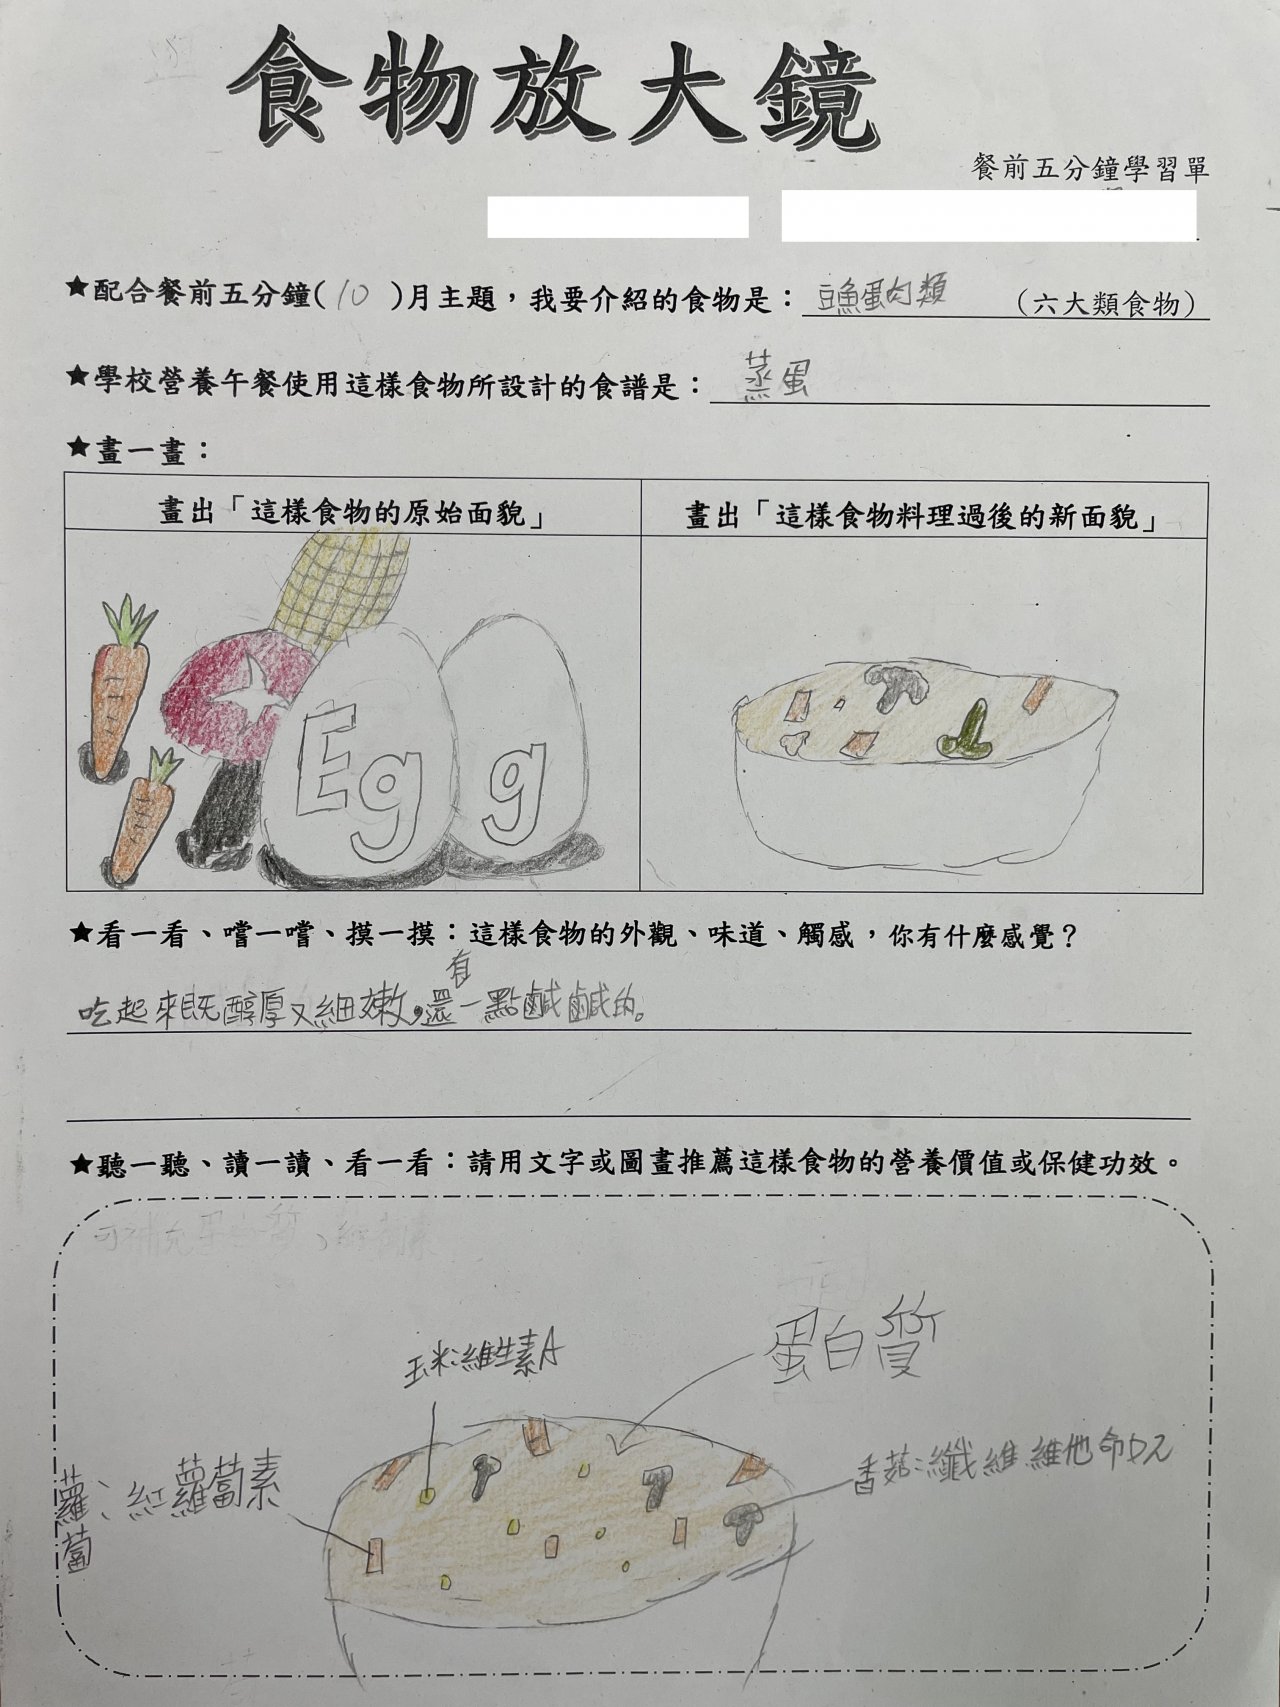 食物放大鏡
餐前五分鐘學習單
★配合餐前五分鐘(10)月主題，我要介紹的食物是：豆魚蛋肉類（六大類食物）
★學校營養午餐使用這樣食物所設計的食譜是：蒸蛋
★畫一畫：
畫出「這樣食物的原始面貌」
畫出「這樣食物料理過後的新面貌」
Eg g
★看一看、嚐一嚐、摸一摸：這樣食物的外觀、味道、觸感，你有什麼感覺？
吃起來既醇厚又細嫩，還有一點鹹鹹的。
★聽一聽、讀一讀、看一看：請用文字或圖畫推薦這樣食物的營養價值或保健功效。
玉米：維生素A
蛋白質
香菇：纖維 維他命D
蘿蔔、紅蘿蔔素